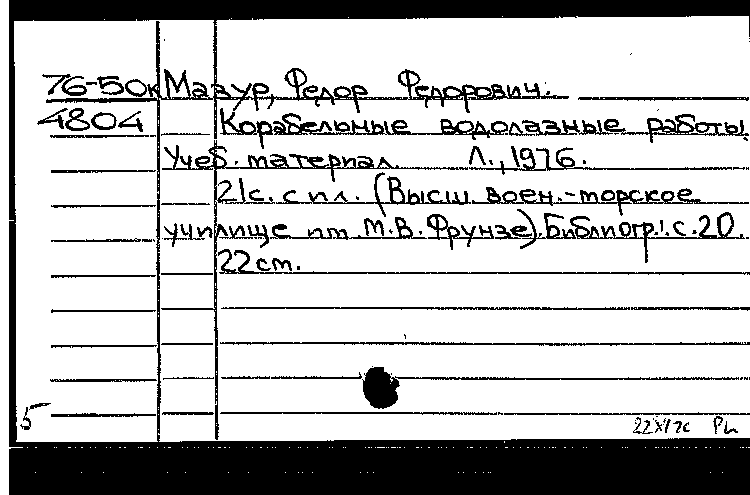 76-50к Мазур, Федор Федорович.
4804 Корабельные водолазные работы.
Учеб. материал. Л., 1976.
21с. с ил. (Высш. воен.-морское
училище им. М.В. Фрунзе). Библиогр.: с.20.
22см.
5